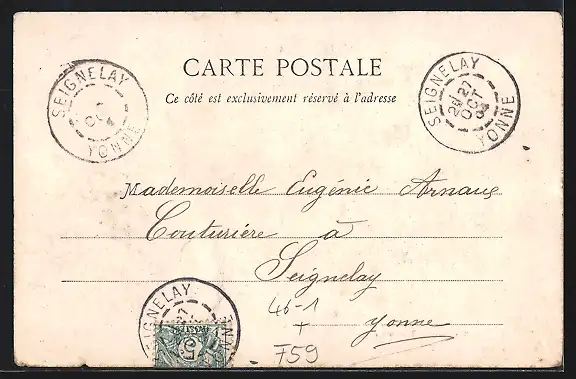 CARTE POSTALE
Ce côté est exclusivement réservé à l'adresse
SEIGNELAY
YONNE
SEIGNELAY
OCT
YONNE
Mademoiselle Eugénie Arnaud
Couturière à
Seignelay
46-1
+
759
Yonne
SEIGNELAY
5
POSTES